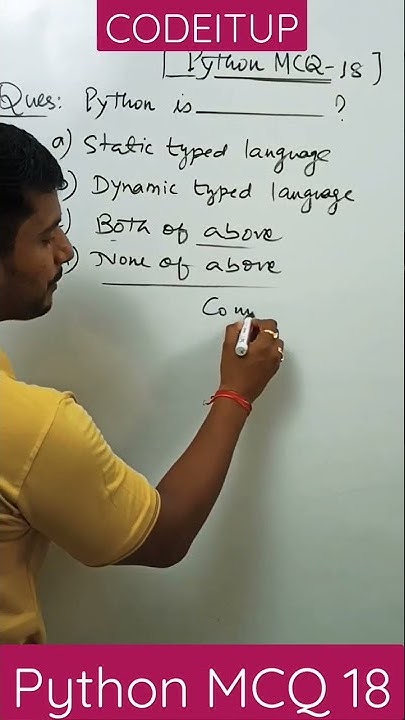 CODEITUP
[Python MCQ-18]
Ques: Python is ________ ?
a) Static typed language
b) Dynamic typed language
) Both of above
) None of above
Com
Python MCQ 18